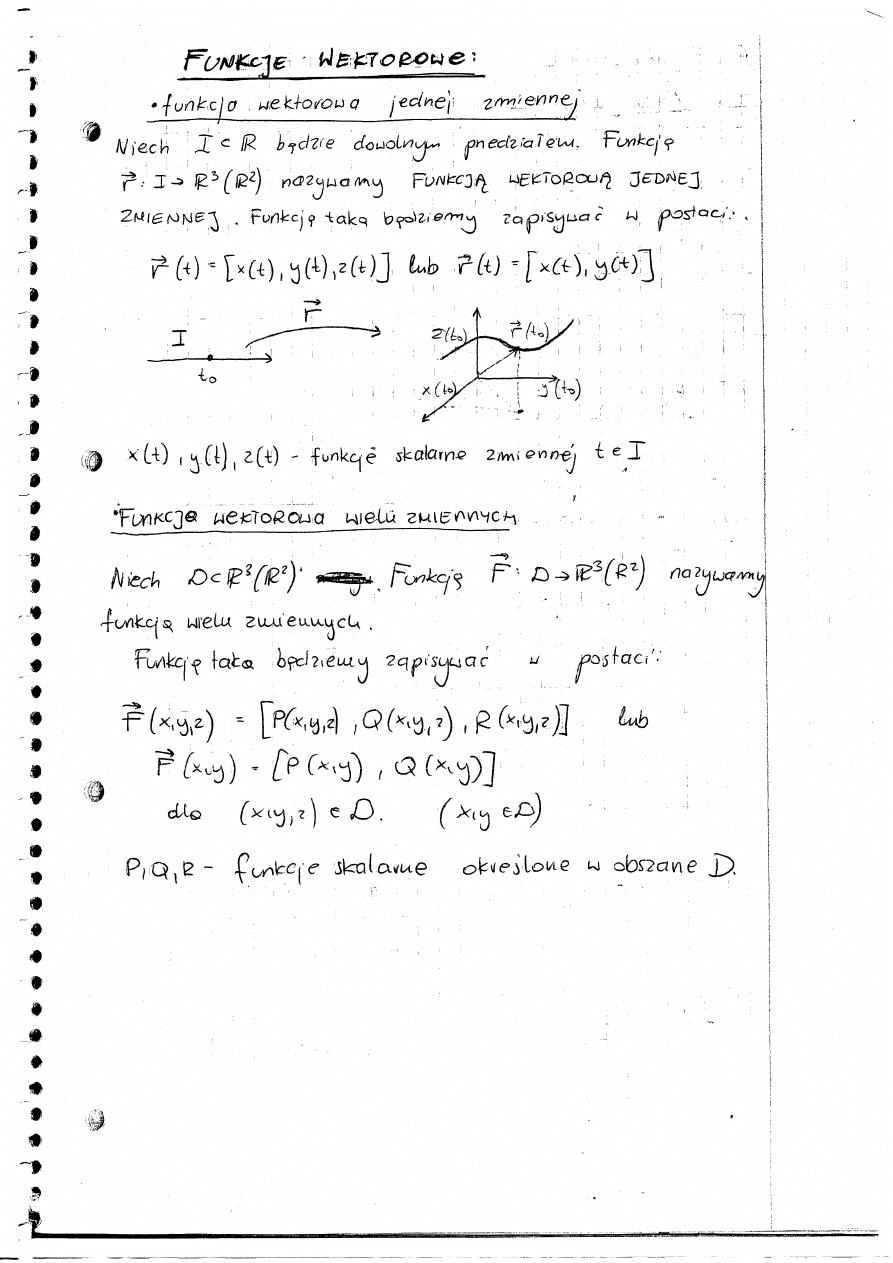 FUNKCJE WEKTOROWE:
• funkcja wektorowa jednej zmiennej
Niech I ⊂ ℝ będzie dowolnym przedziałem. Funkcję
r⃗: I → ℝ³(ℝ²) nazywamy FUNKCJĄ WEKTOROWĄ JEDNEJ
ZMIENNEJ. Funkcję taką będziemy zapisywać w postaci:
r⃗(t) = [x(t), y(t), z(t)] lub r⃗(t) = [x(t), y(t)]
r⃗
I
t₀
z(t₀) r⃗(t₀)
x(t₀) y(t₀)
x(t), y(t), z(t) - funkcje skalarne zmiennej t ∈ I
• FUNKCJA WEKTOROWA WIELU ZMIENNYCH
Niech D ⊂ ℝ³(ℝ²). Funkcję F⃗: D → ℝ³(ℝ²) nazywamy
funkcją wielu zmiennych.
Funkcję taką będziemy zapisywać w postaci:
F⃗(x,y,z) = [P(x,y,z), Q(x,y,z), R(x,y,z)] lub
F⃗(x,y) = [P(x,y), Q(x,y)]
dla (x,y,z) ∈ D. (x,y ∈ D)
P, Q, R - funkcje skalarne określone w obszarze D.